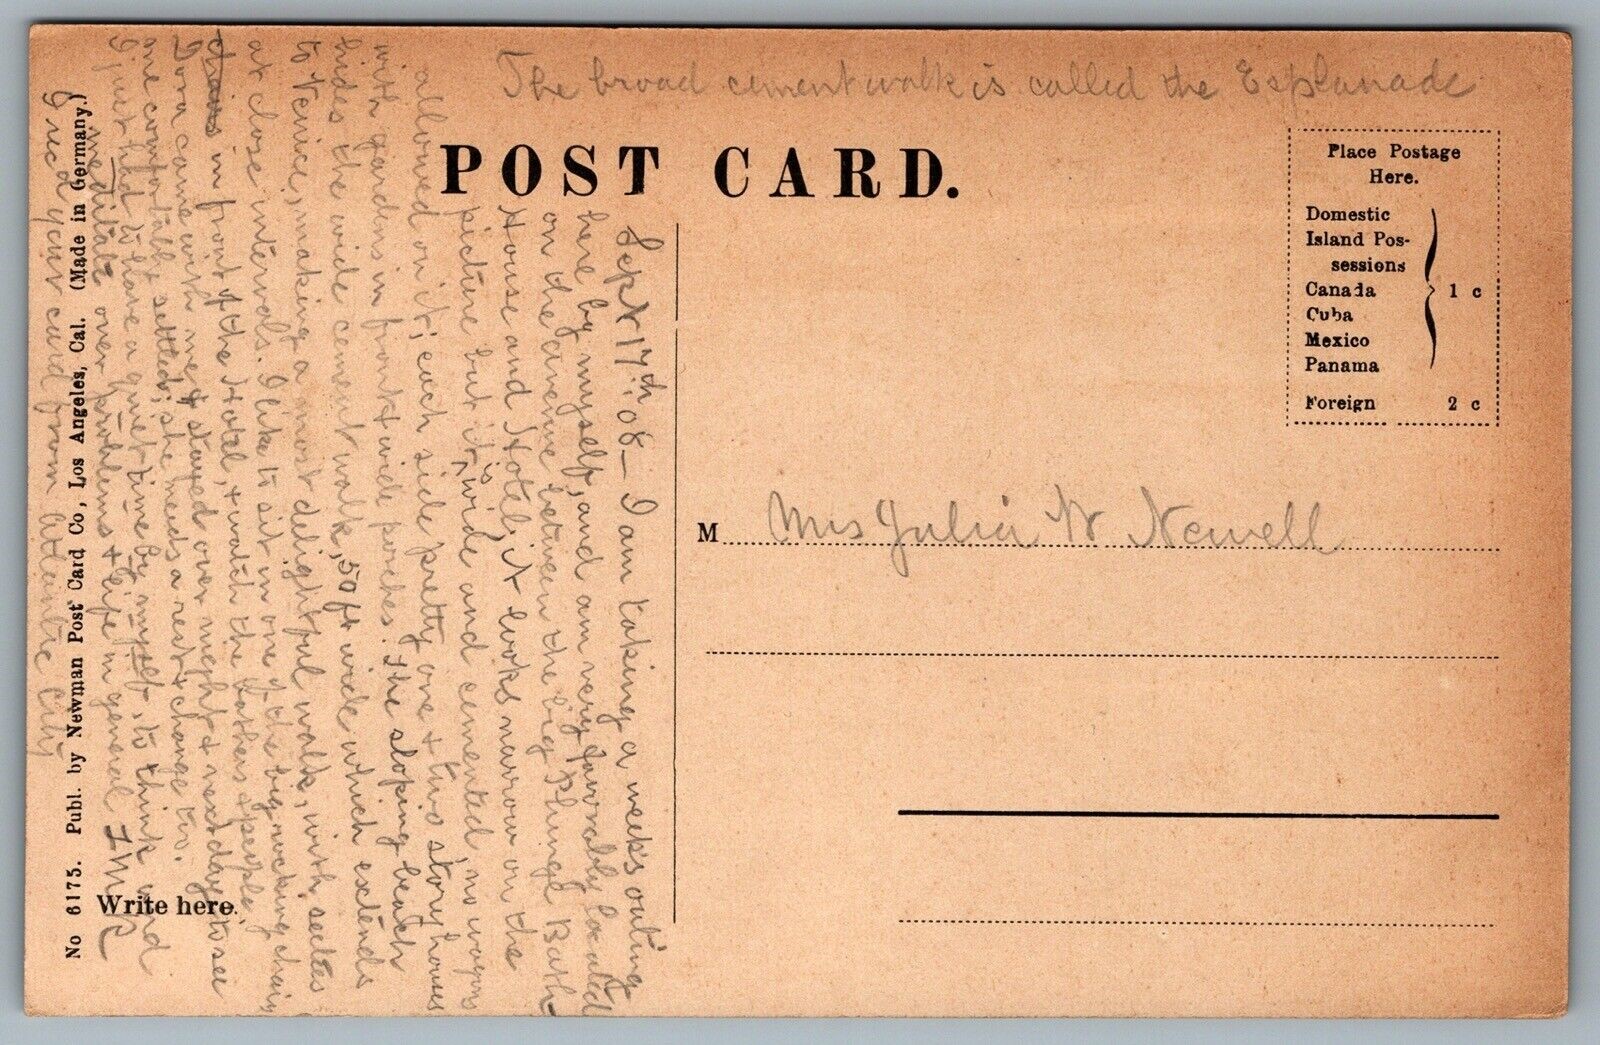 The broad cement walk is called the Esplanade
POST CARD.
Place Postage
Here.
Domestic
Island Pos-
sessions
Canada
Cuba
Mexico
Panama
1 c
Foreign 2 c
M Mrs Julia W Newell
Sept 17th 08 — I am taking a week's outing
here by myself, and am very favorably located
on the avenue between the big Plunge Bath
House and Hotel; it looks narrow on the
picture but it is wide and cemented, no wagons
allowed on it; each side pretty one & two story houses
with gardens in front & wide porches. The sloping beach
hides the wide cement walk, 50 ft wide which extends
to Venice, making a most delightful walk, with settees
at close intervals. I like to sit in one of the big rocking chairs
chairs in front of the Hotel, & watch the bathers & people,
Dora came with me & stayed over night & next day to see
me comfortably settled; she needs a rest & change too.
I just had to have a quiet time by myself, to think and
meditate over problems & life in general I M R
I rec'd your card from Atlantic City
Write here.
No 6175. Publ. by Newman Post Card Co, Los Angeles, Cal. (Made in Germany.)